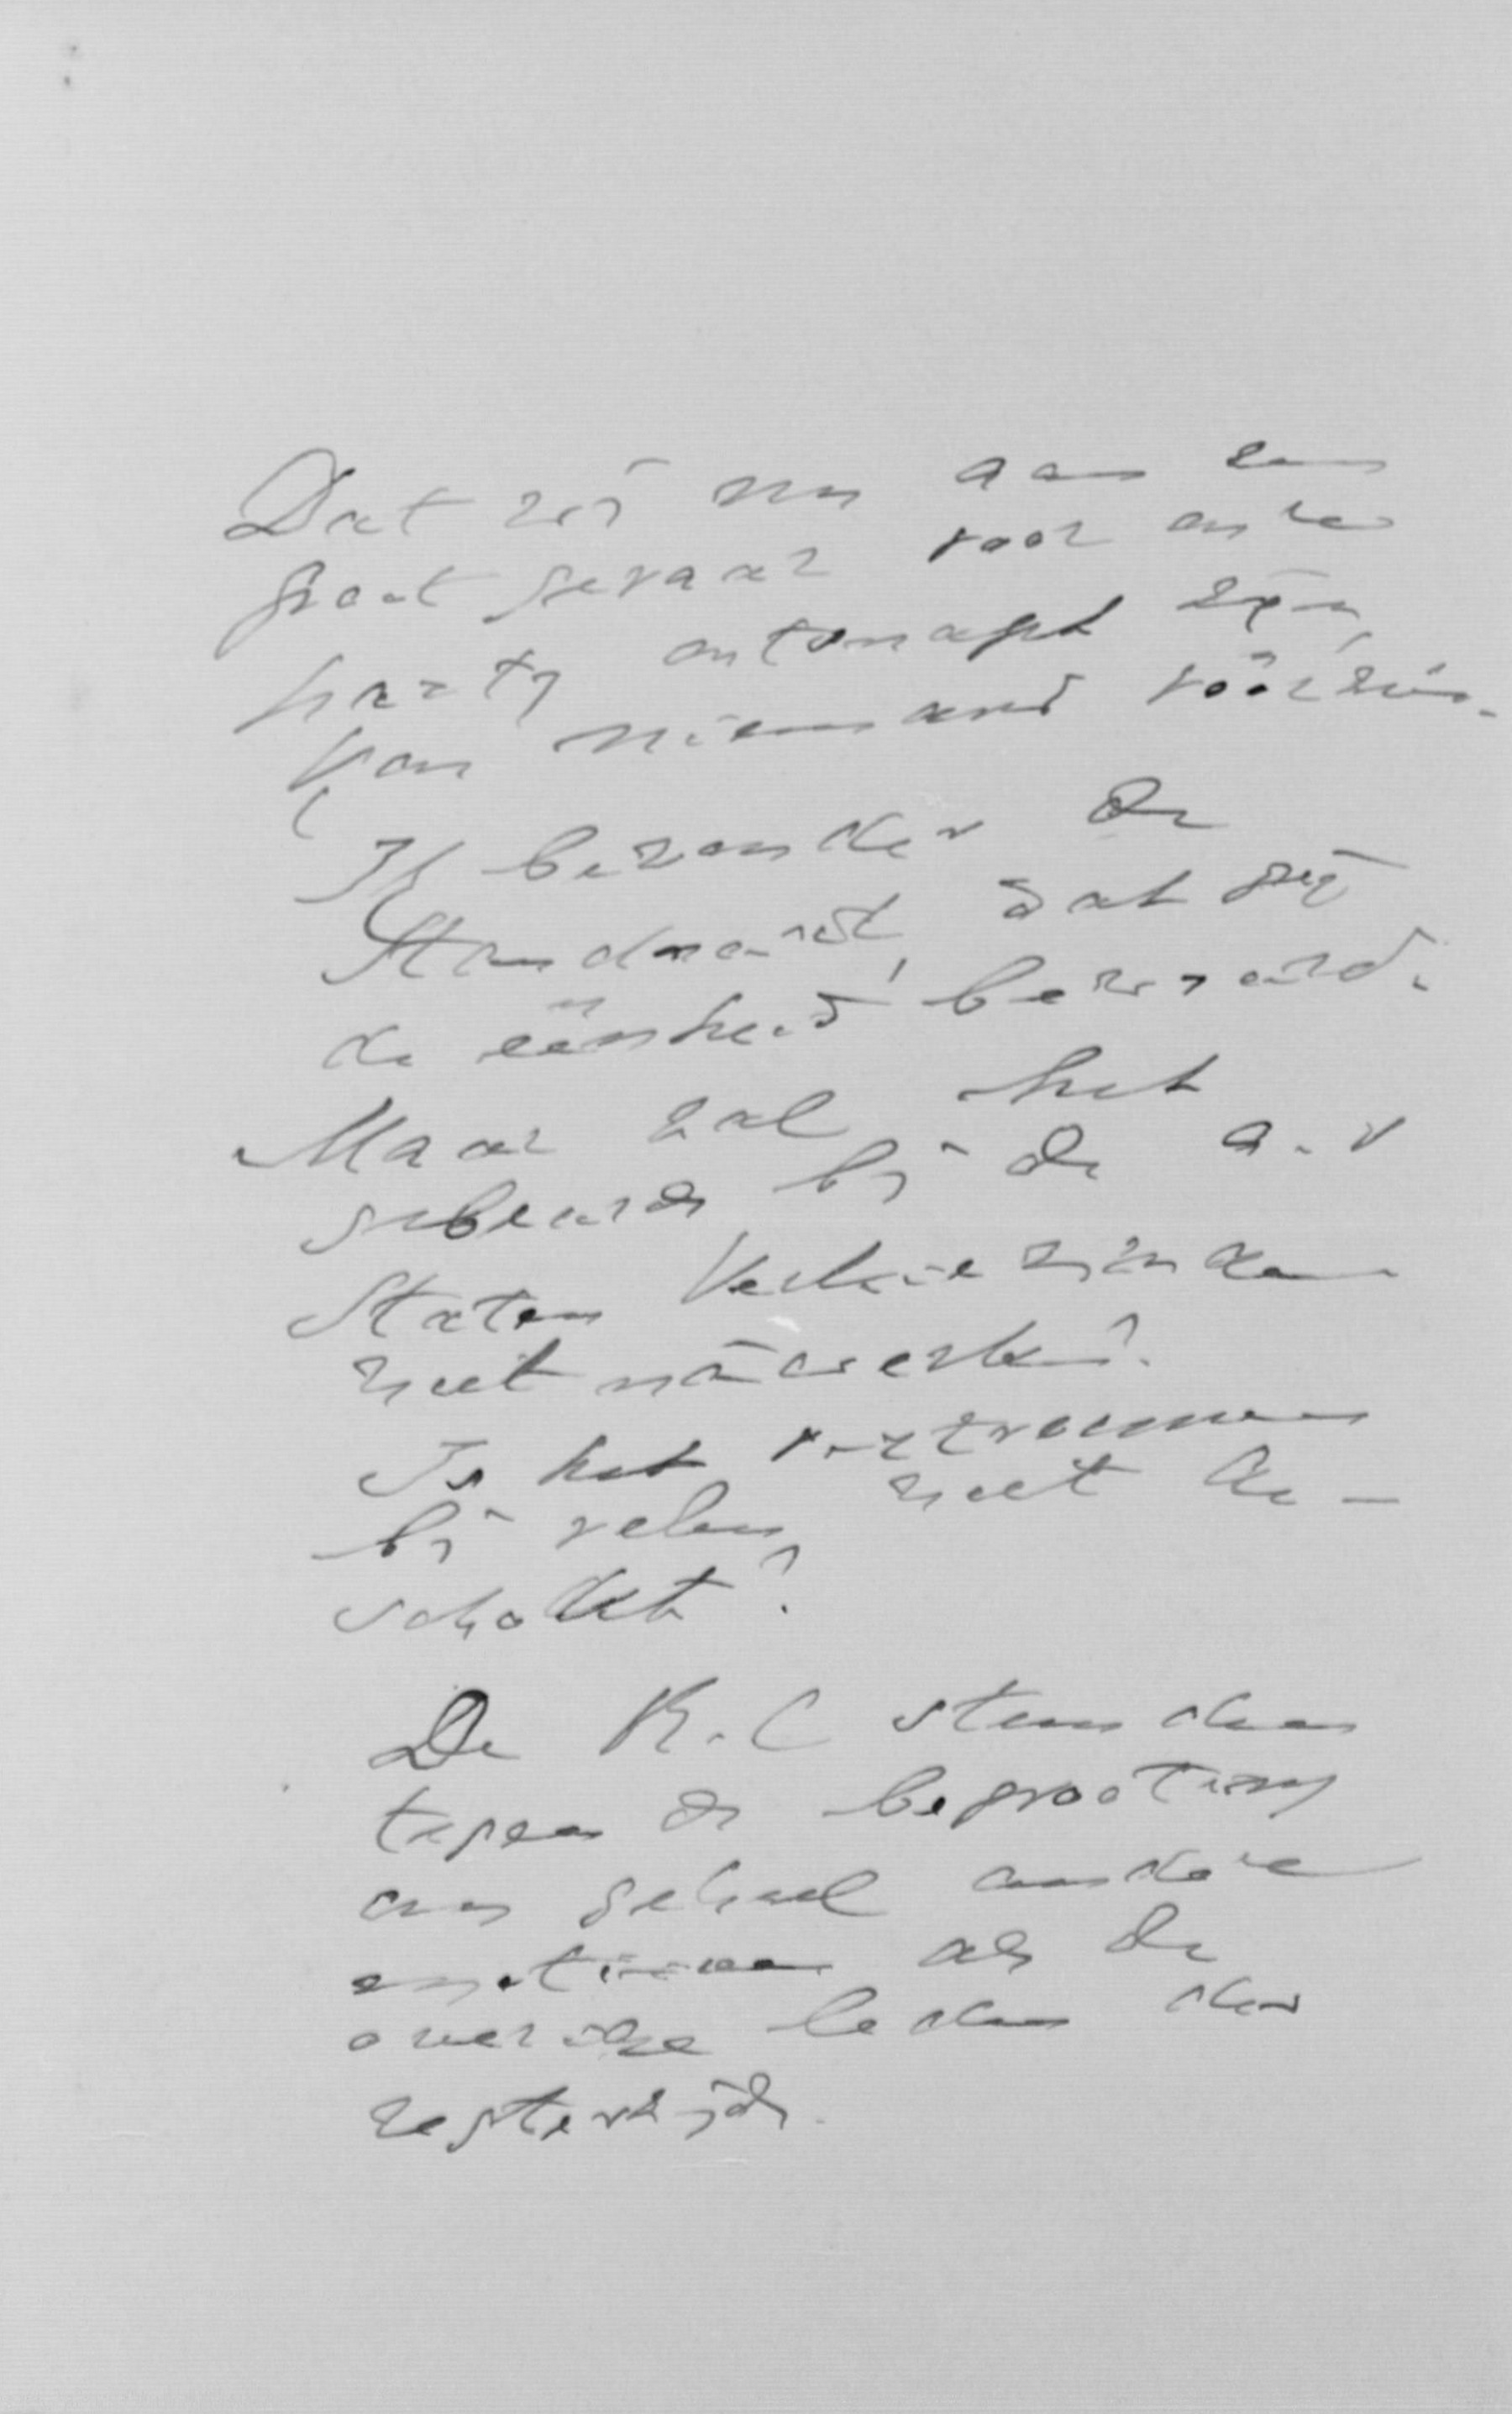 Dat wij nu aan een
groot gevaar voor onze
partij ontsnapt zijn,
kan niemand vóórzien.
Ik bewonder de
Standaard, dat zij
de éénheid bewaard.
Maar zal het
gebeurde bij de a.s
Staten Verkiezinden
niet nàwerken?
Is het vertrouwen
bij velen niet ge-
schokt?
De R.C stemden
tegen de begrooting
om geheel andere
motieven als de
overige leden der
regterzijde.